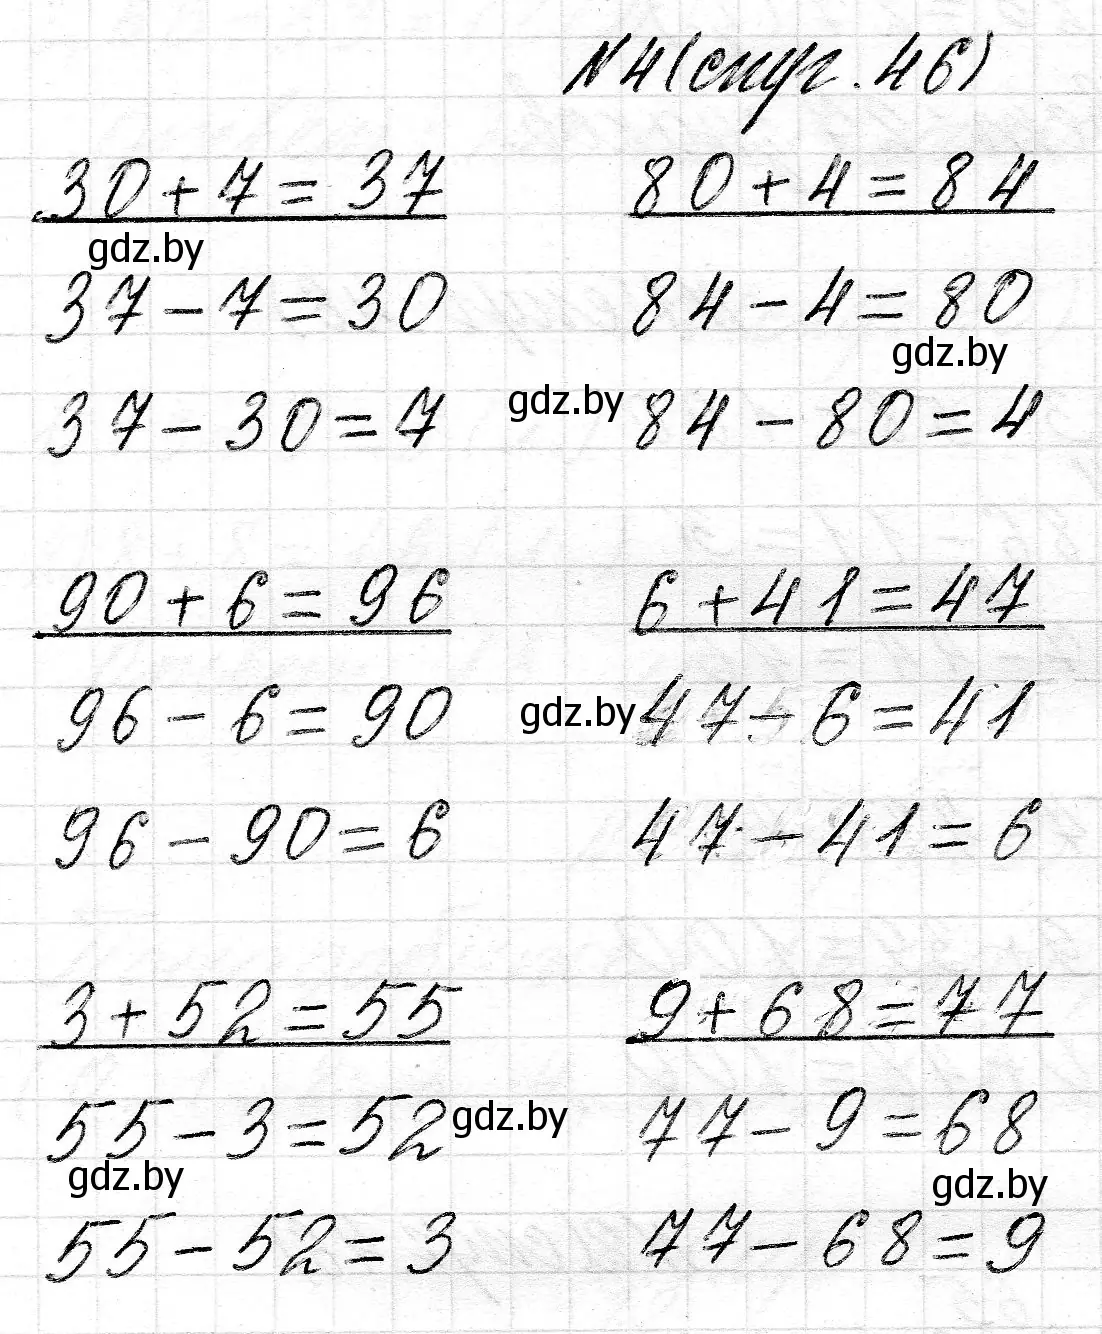 N 4 (снуг. 46)
30 + 7 = 37
80 + 4 = 84
gdz.by
37 - 7 = 30
84 - 4 = 80
gdz.by
37 - 30 = 7
gdz.by
84 - 80 = 4
90 + 6 = 96
6 + 41 = 47
96 - 6 = 90
gdz.by
47 - 6 = 41
96 - 90 = 6
47 - 41 = 6
3 + 52 = 55
9 + 68 = 77
55 - 3 = 52
gdz.by
77 - 9 = 68
gdz.by
gdz.by
55 - 52 = 3
77 - 68 = 9